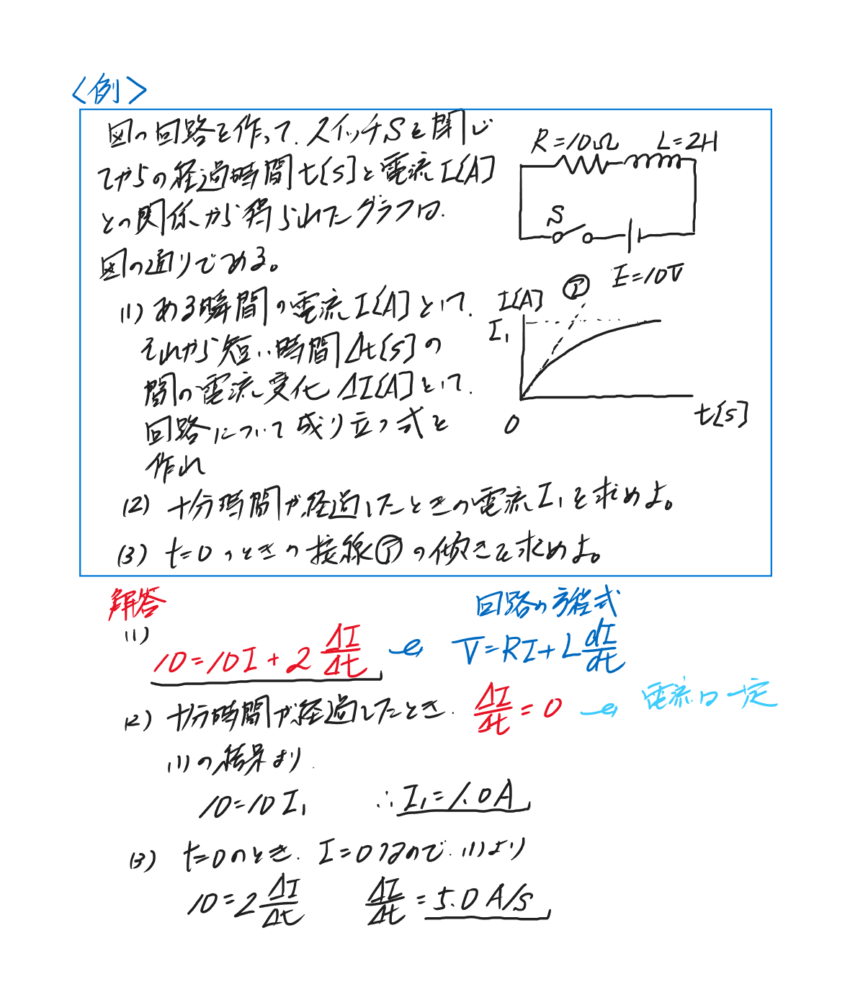 <例>
図の回路を作って、スイッチSを閉じ
てからの経過時間t[s]と電流I[A]
との関係から得られたグラフは、
図の通りである。
(1) ある瞬間の電流I[A]として、
それから短い時間Δt[s]の
間の電流変化ΔI[A]として、
回路について成り立つ式を
作れ
(2) 十分時間が経過したときの電流I₁を求めよ。
(3) t=0のときの接線①の傾きを求めよ。
R=10Ω L=2H
S
E=10V
I[A] ①
I₁
0
t[s]
解答
(1)
10=10I+2 ΔI/Δt
回路の方程式
V=RI+L dI/dt
(2) 十分時間が経過したとき、ΔI/Δt=0 電流は一定
(1)の結果より
10=10I₁ ∴I₁=1.0A
(3) t=0のとき、I=0なので、(1)より
10=2 ΔI/Δt ΔI/Δt=5.0A/s